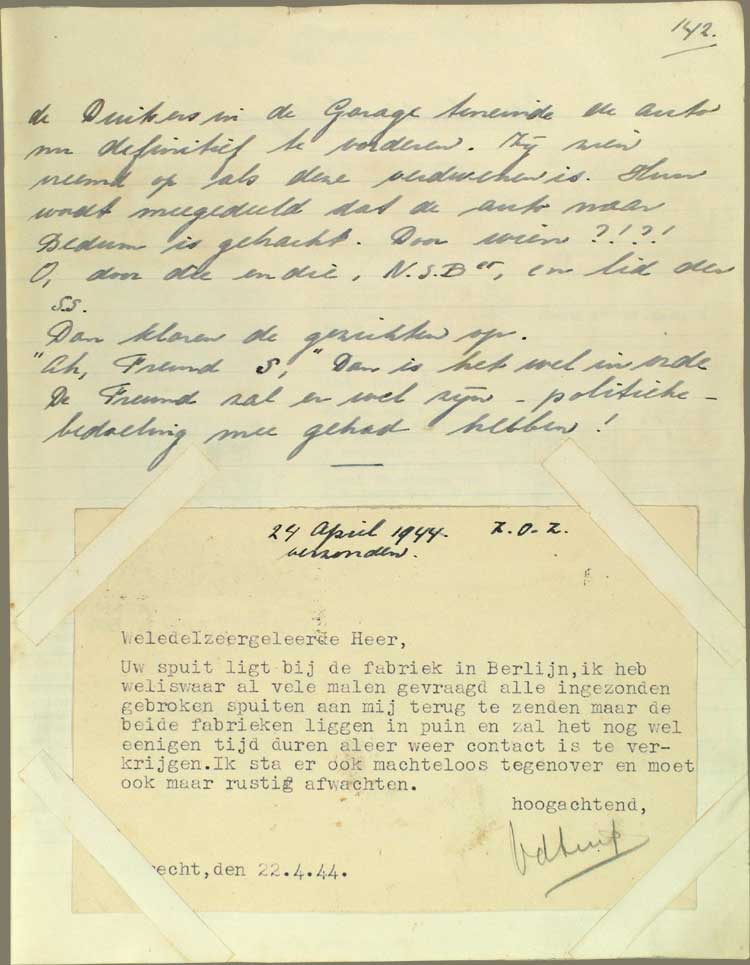 142.
de Duitsers in de Garage teneinde de auto
nu definitief te vorderen. Zij zien
vreemd op als deze verdwenen is. Hun
wordt meegedeeld dat de auto naar
Bedum is gebracht. Door wien ?!?!
O, door die en die, N.S.Ber, en lid der
S.S.
Dan klaren de gezichten op.
"Ah, Freund S," Dan is het wel in orde
De Freund zal er wel zijn - politieke -
bedoeling mee gehad hebben!
24 April 1944. Z.O.Z.
verzonden.
Weledelzeergeleerde Heer,
Uw spuit ligt bij de fabriek in Berlijn,ik heb
weliswaar al vele malen gevraagd alle ingezonden
gebroken spuiten aan mij terug te zenden maar de
beide fabrieken liggen in puin en zal het nog wel
eenigen tijd duren aleer weer contact is te ver-
krijgen.Ik sta er ook machteloos tegenover en moet
ook maar rustig afwachten.
hoogachtend,
recht,den 22.4.44.